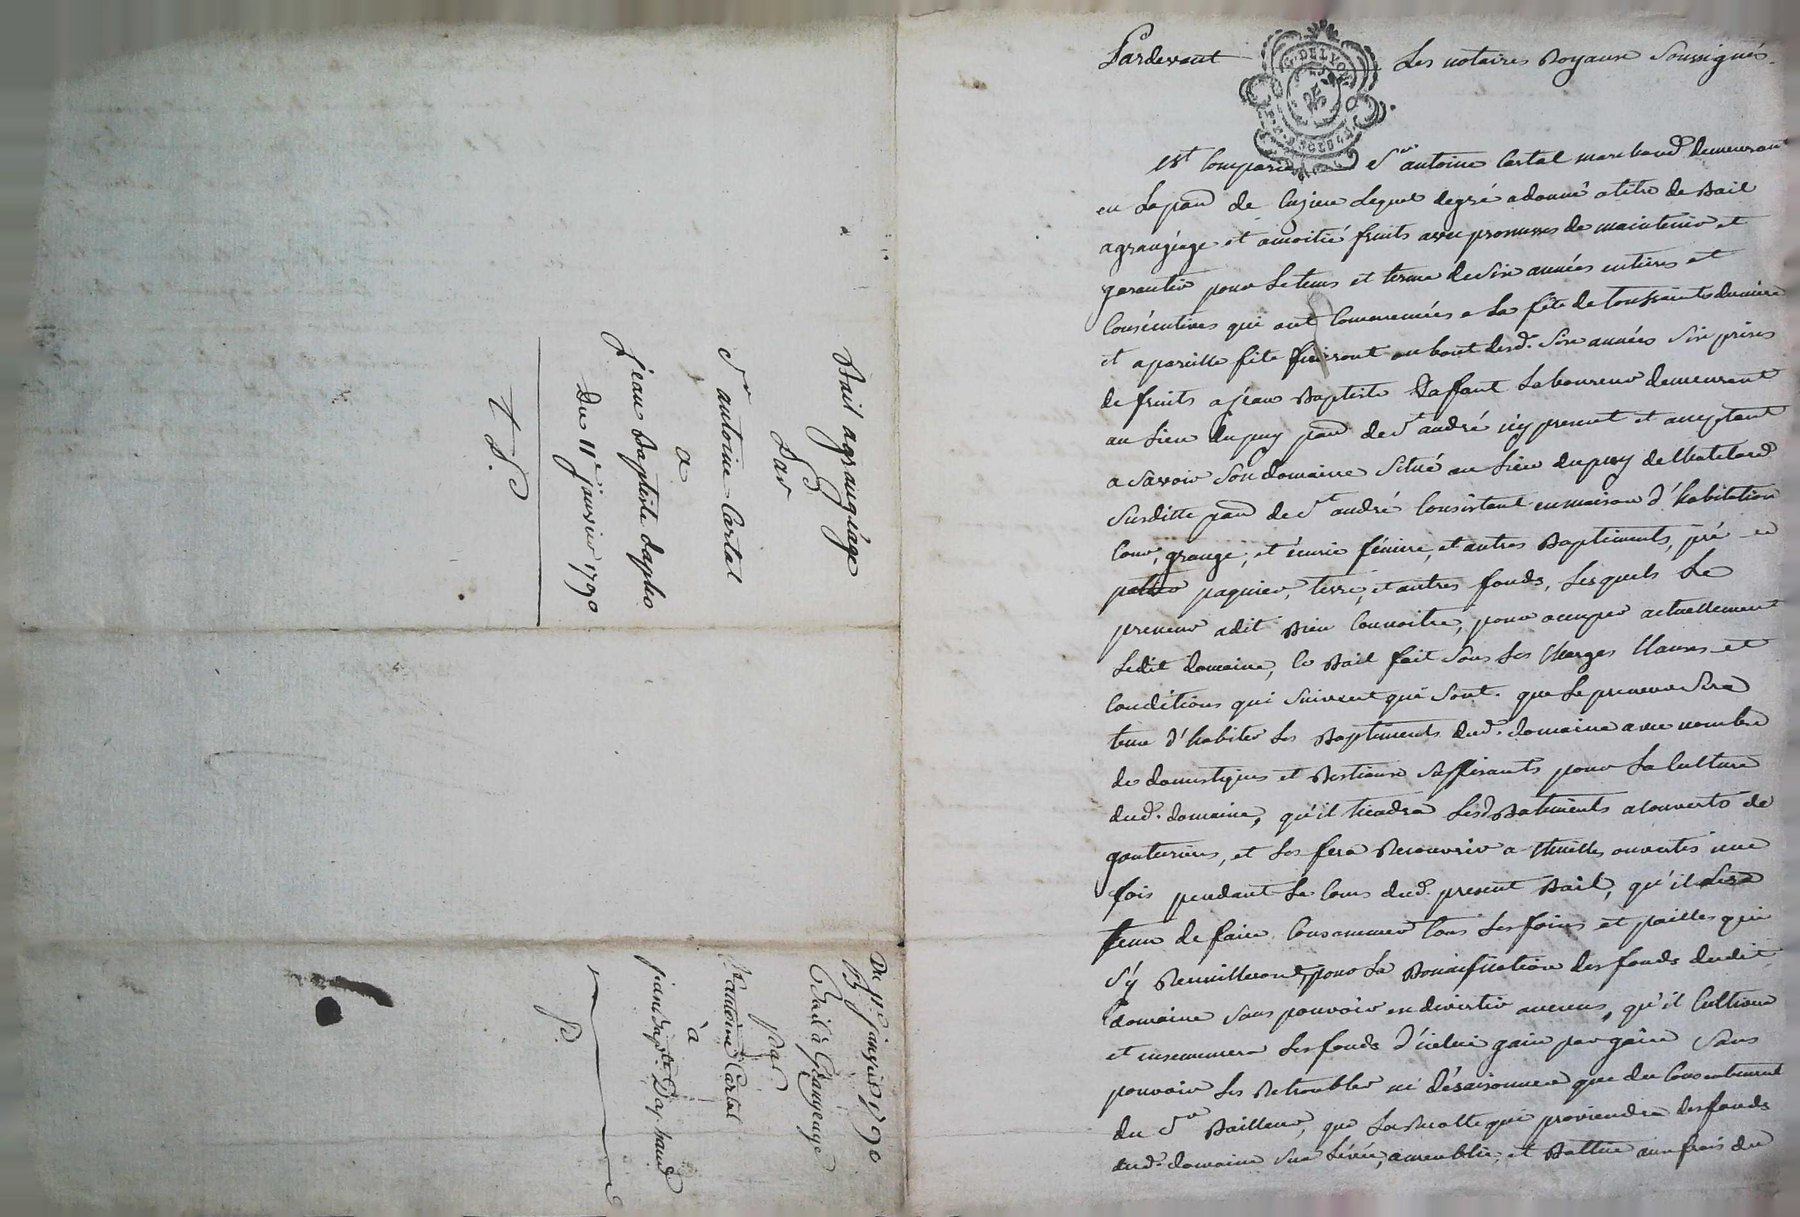 Bail agrangéage
Par
Sr antoine Cartal
a
Jean Baptiste dapho
Du 11e janvier 1790
t P.
Du 11e janvier 1790
Bail à Grangeage
par
Sr antoine Cartal
à
jean bapte Daphaud
P.
Pardevant Les notaires Royaux Soussignés
G. DE LYON
est Comparu Sr antoine Cartal marchand demeurant
en La psse de Lequel degré adonné atitre de Bail
agrangéage et amoitié fruits avec promesses de maintenir et
garantir pour Letems et terme de Six années entieres et
Consécutives qui ont Commencées a La fête de toussaints derniere
et apareille fête finiront au bout desd. Six années Six prises
de fruits a jean Baptiste Laboureur demeurant
au Lieu dupuy psse de St andré icy present et acceptant
a Savoir Son domaine Situé au Lieu dupuy de Chatelard
Susditte psse de St andré Consistant en maison d'habitation
Cour, grange, et écurie féniere, et autres Baptiments, pré
paquier, terre, et autres fonds, Lesquels Le
preneur adit Bien Connoitre, pour occuper actuellement
Ledit domaine, Ce Bail fait Sous Les Charges Clauses et
Conditions qui Suivent qui Sont. que Le preneur Sera
tenu d'habiter Les Baptiments dud. domaine avec nombre
de domestiques et Bestiaux Suffisants pour La Culture
dud. domaine, qu'il tiendra Lesd Batiments acouverts de
goutieres, et Les fera Recouvrir a thuilles ouvertes une
fois pendant Le Cours dud. present Bail, qu'il Sera
tenu de faire Consommer tous Les foins et pailles qui
S'y Recuilleront, pour La Bonnification des fonds dudit
domaine Sans pouvoir en divertir aucuns, qu'il Cultivera
et ensemencera Les fonds d'icelui gain par gain Sans
pouvoir Les Retroubler ni désaisonner que du Consentement
du Sr Bailleur, que La Recolte qui proviendra des fonds
dud. domaine Sera Levée, ameublie, et Battue aux frais du